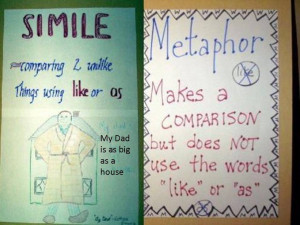 SIMILE
comparing 2 unlike
Things using like or as
My Dad
is as big
as a
house
Metaphor
like
Makes a
COMPARISON
but does NOT
use the words
"like" or "as"